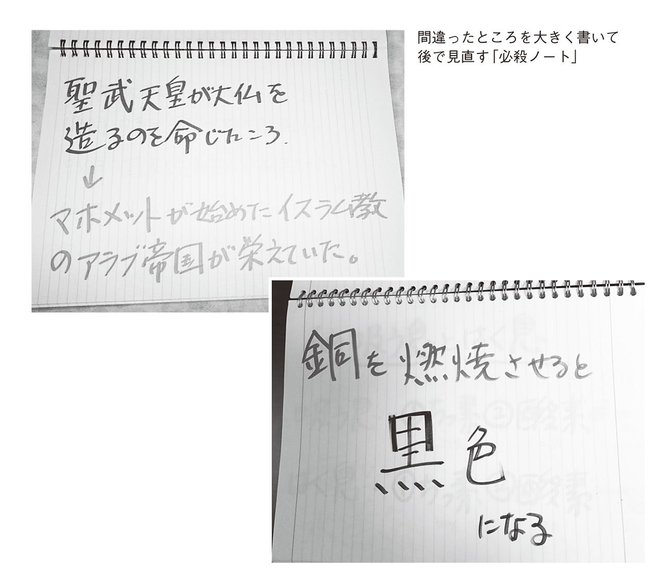 間違ったところを大きく書いて
後で見直す「必殺ノート」
聖武天皇が大仏を
造るのを命じたころ.
↓
マホメットが始めたイスラム教
のアラブ帝国が栄えていた。
銅を燃焼させると
黒色
になる